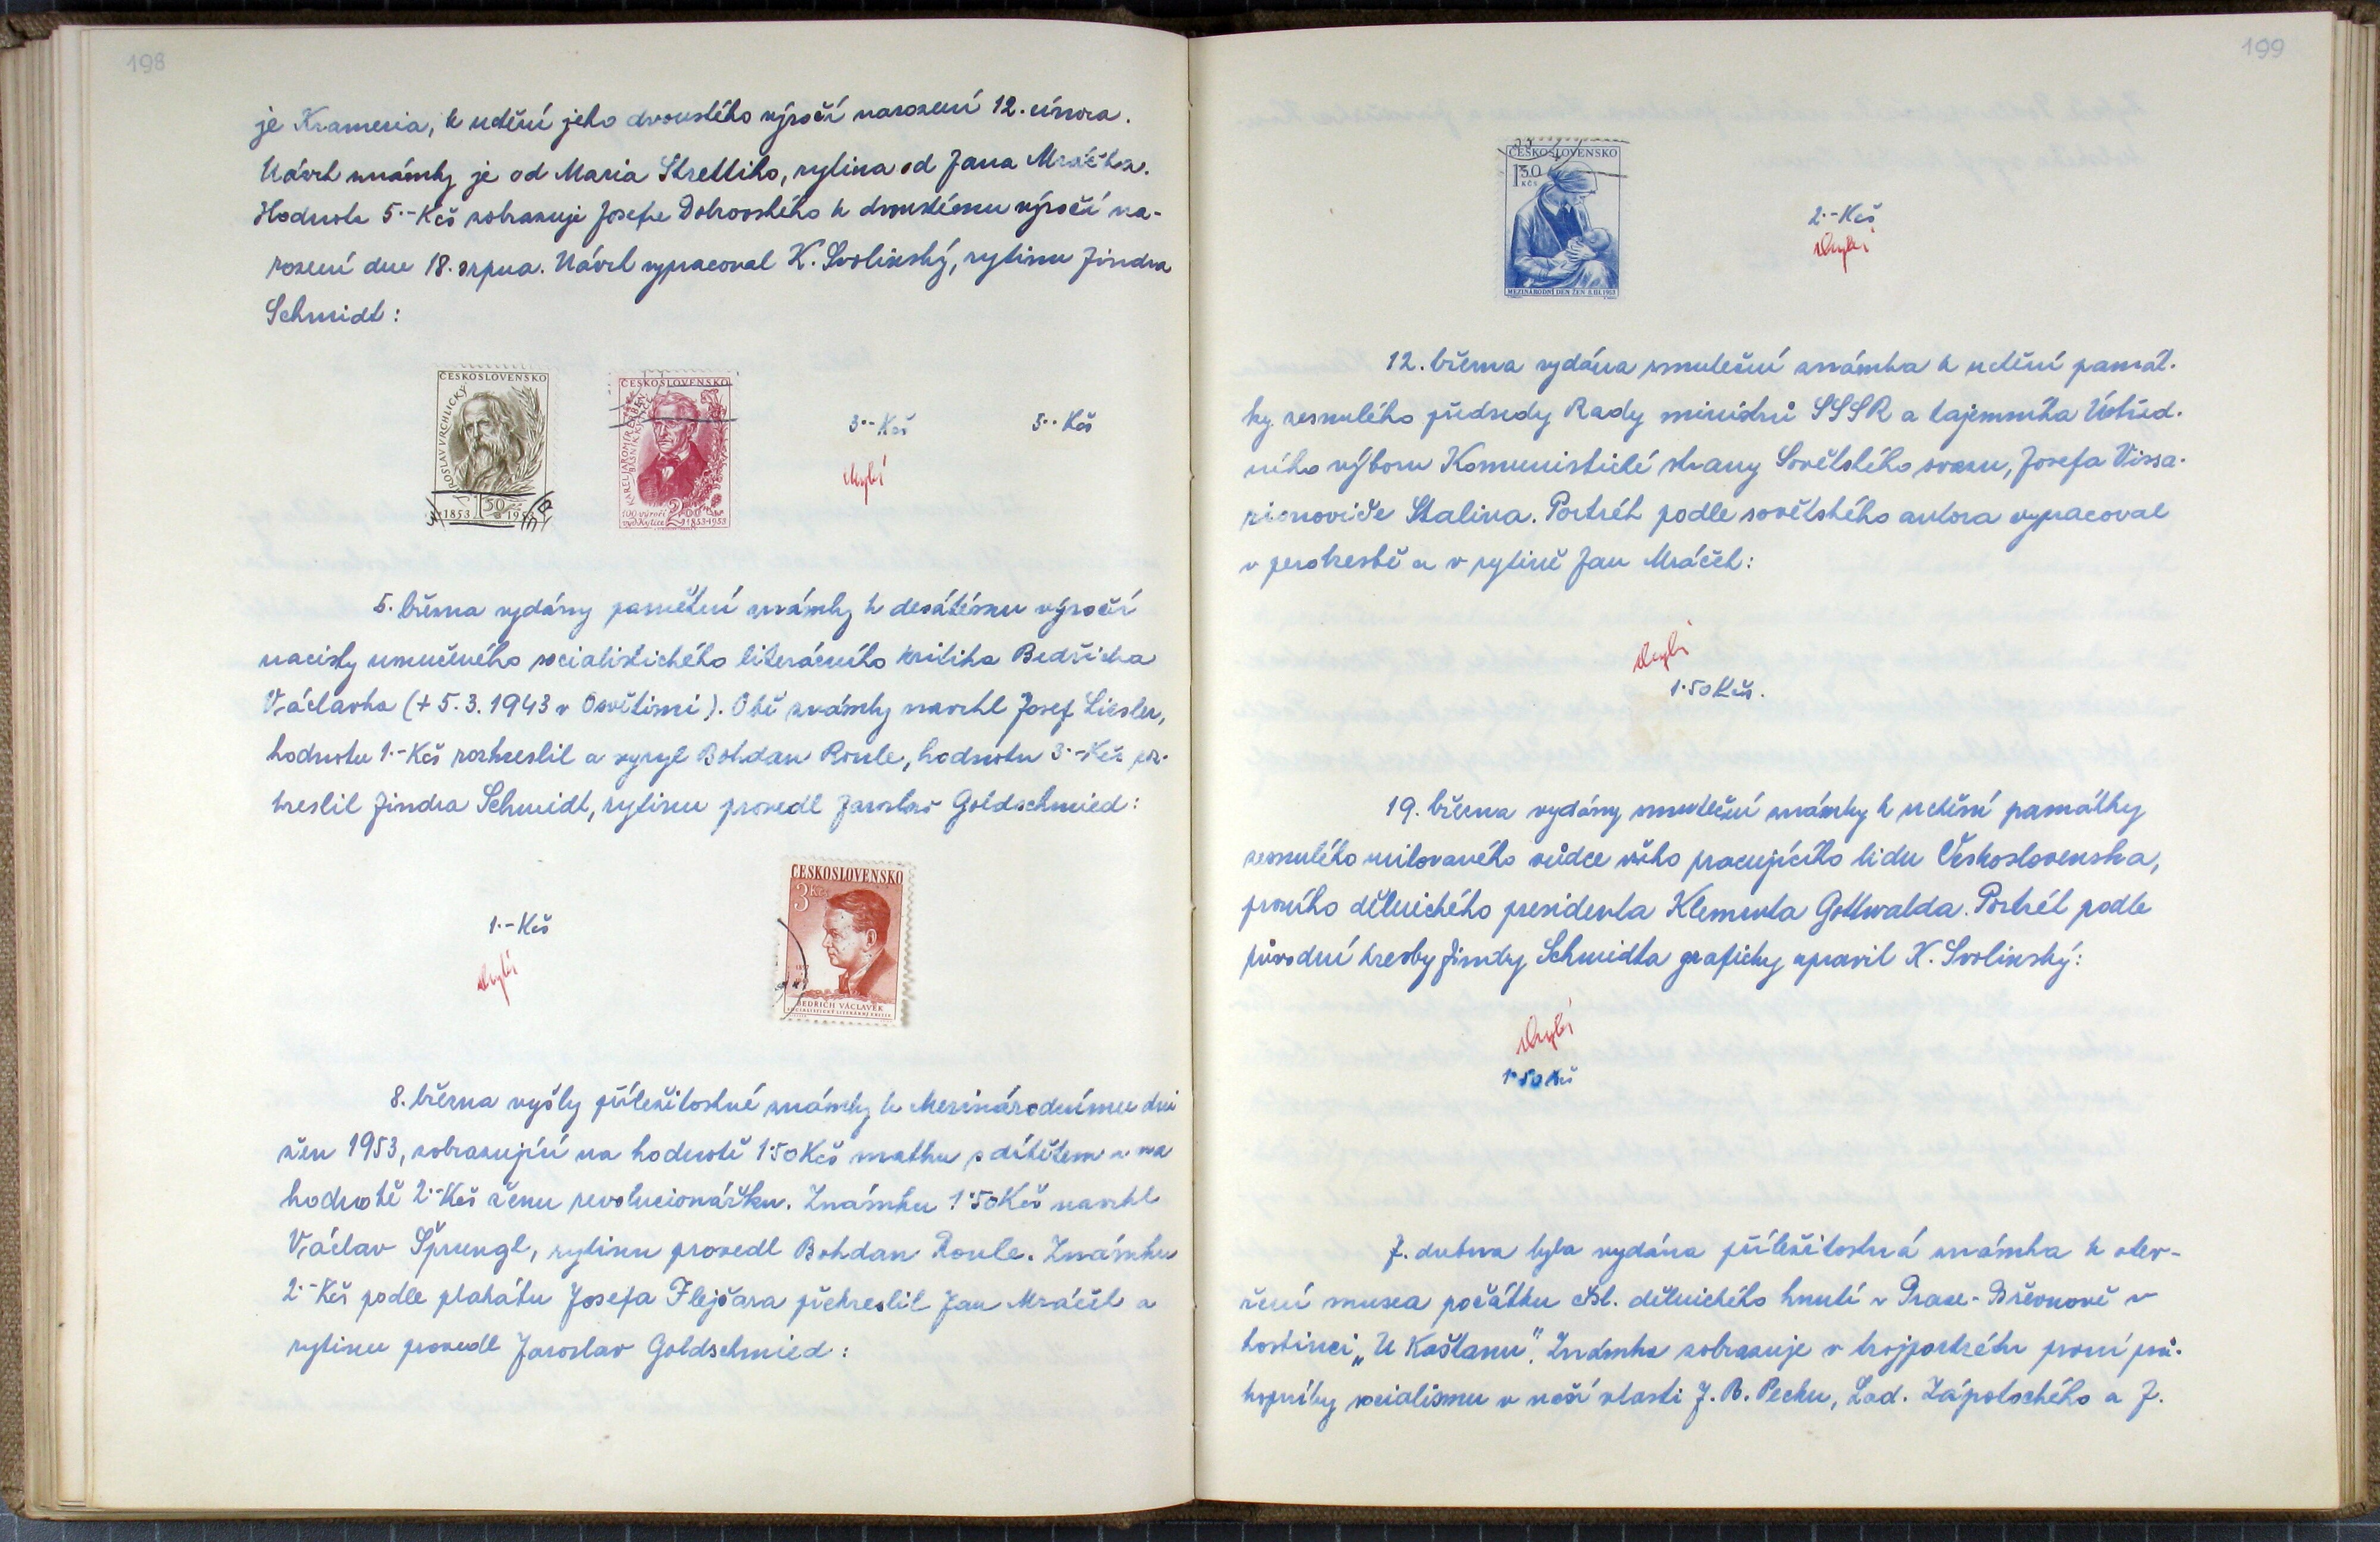 198
je Krameria, k uctění jeho dvoustého výročí narození 12. února.
Návrh známky je od Maria Strettiho, rytina od Jana Mráčka.
Hodnota 5.-Kčs zobrazuje Josefa Dobrovského k dvoustému výročí na-
rození dne 18. srpna. Návrh vypracoval K. Svolinský, rytinu Jindra
Schmidt:
ČESKOSLOVENSKO
JAROSLAV VRCHLICKÝ
1853 1 50 1953
ČESKOSLOVENSKO
KAREL JAROMÍR ERBEN
BÁSNÍK KYTICE
100. výročí
vyd. Kytice 2 00 1853-1953
3.-Kčs
chybí
5.-Kčs
5. března vydány pamětní známky k desátému výročí
nacisty umučeného socialistického literárního kritika Bedřicha
Václavka (+ 5.3.1943 v Osvětimi). Obě známky navrhl Josef Liesler,
hodnotu 1.-Kčs rozkreslil a vyryl Bohdan Roule, hodnotu 3.-Kčs roz-
kreslil Jindra Schmidt, rytinu provedl Jaroslav Goldschmied:
1.-Kčs
chybí
ČESKOSLOVENSKO
3 Kčs
BEDŘICH VÁCLAVEK
SOCIALISTICKÝ LITERÁRNÍ KRITIK
8. března vyšly příležitostné známky k Mezinárodnímu dni
žen 1953, zobrazující na hodnotě 1.50 Kčs matku s dítětem a na
hodnotě 2.-Kčs ženu revolucionářku. Známku 1.50 Kčs navrhl
Václav Šprungl, rytinu provedl Bohdan Roule. Známku
2.-Kčs podle plakátu Josefa Flejšara překreslil Jan Mráček a
rytinu provedl Jaroslav Goldschmied:
199
ČESKOSLOVENSKO
1 50
KČS
MEZINÁRODNÍ DEN ŽEN 8.III.1953
2.-Kčs
chybí
12. března vydána smuteční známka k uctění památ-
ky zesnulého předsedy Rady ministrů SSSR a tajemníka Ústřed-
ního výboru Komunistické strany Sovětského svazu, Josefa Vissa-
rionoviče Stalina. Portrét podle sovětského autora vypracoval
v perokresbě a v rytině Jan Mráček:
chybí
1.50 Kčs.
19. března vydány smuteční známky k uctění památky
zesnulého milovaného vůdce všeho pracujícího lidu Československa,
prvního dělnického presidenta Klementa Gottwalda. Portrét podle
původní kresby Jindry Schmidta graficky upravil K. Svolinský:
chybí
1.50 Kčs
7. dubna byla vydána příležitostná známka k otev-
ření musea počátku čsl. dělnického hnutí v Praze-Břevnově v
hostinci „U Kaštanu". Známka zobrazuje v trojportrétu první prů-
kopníky socialismu v naší vlasti J. B. Pecku, Lad. Zápotockého a J.